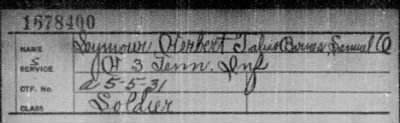 1678400
NAME Seymour, Herbert I alias Barnes Samuel O
S
SERVICE H 3 Tenn. Inf
CTF. No. a 5-5-31
CLASS Soldier